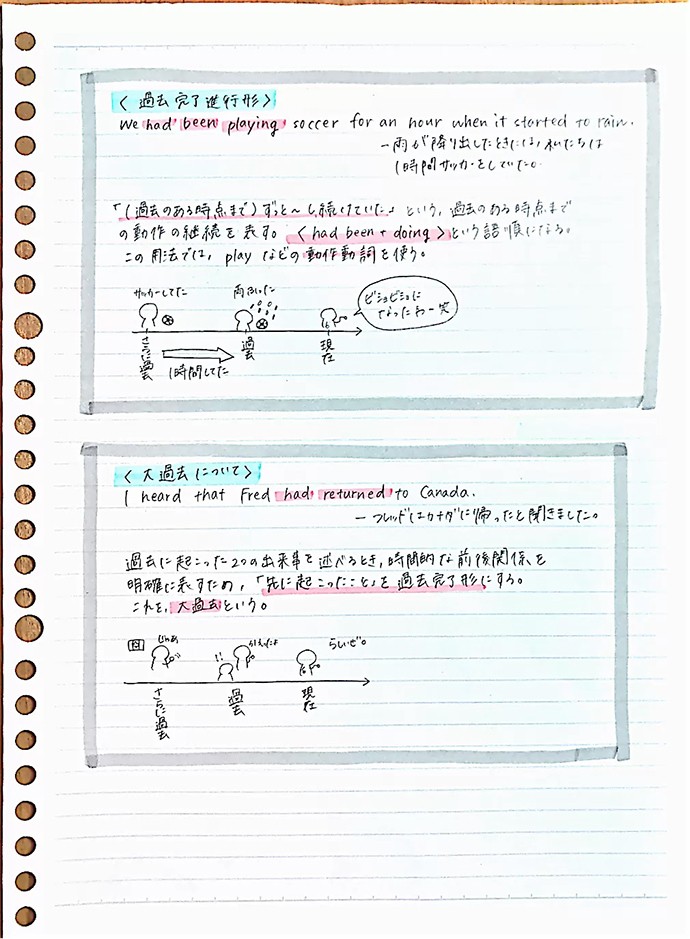 〈過去完了進行形〉
We had been playing soccer for an hour when it started to rain.
ー雨が降り出したときには、私たちは
1時間サッカーをしていた。
「(過去のある時点まで)ずっと〜し続けていた」という、過去のある時点まで
の動作の継続を表す。〈had been + doing〉という語順になる。
この用法では、playなどの動作動詞を使う。
サッカーしてた
雨ふった
ビショビショに
なったわー笑
さらに過去
過去
現在
1時間してた
〈大過去について〉
I heard that Fred had returned to Canada.
ーフレッドはカナダに帰ったと聞きました。
過去に起こった2つの出来事を述べるとき、時間的な前後関係を
明確に表すため、「先に起こったこと」を過去完了形にする。
これを、大過去という。
図
じゃあ
!!
かえったよ
らしいぜ。
さらに過去
過去
現在